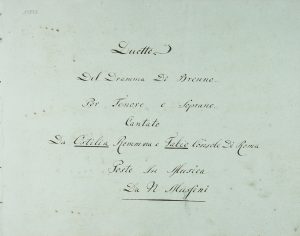 Duetto
Del Dramma Di Brenno
Per Tenore e Soprano
Cantato
Da Ostilia Romana e Fabio Console Di Roma
Posto In Musica
Da N Mussini